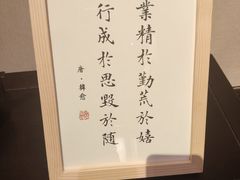 業精於勤荒於嬉
行成於思毀於随
唐·韓愈